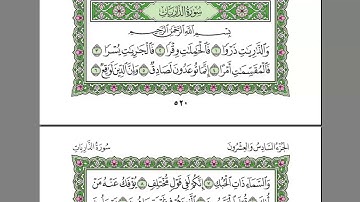 سُورَةُ الذَّارِيَاتِ
بِسْمِ اللَّهِ الرَّحْمَٰنِ الرَّحِيمِ
وَالذَّارِيَاتِ ذَرْوًا ١ فَالْحَامِلَاتِ وِقْرًا ٢ فَالْجَارِيَاتِ يُسْرًا ٣
فَالْمُقَسِّمَاتِ أَمْرًا ٤ إِنَّمَا تُوعَدُونَ لَصَادِقٌ ٥ وَإِنَّ الدِّينَ لَوَاقِعٌ ٦
٥٢٠
الجُزْءُ السَّادِسُ وَالعِشْرُونَ سُورَةُ الذَّارِيَاتِ
وَالسَّمَاءِ ذَاتِ الْحُبُكِ ٧ إِنَّكُمْ لَفِي قَوْلٍ مُخْتَلِفٍ ٨ يُؤْفَكُ عَنْهُ مَنْ